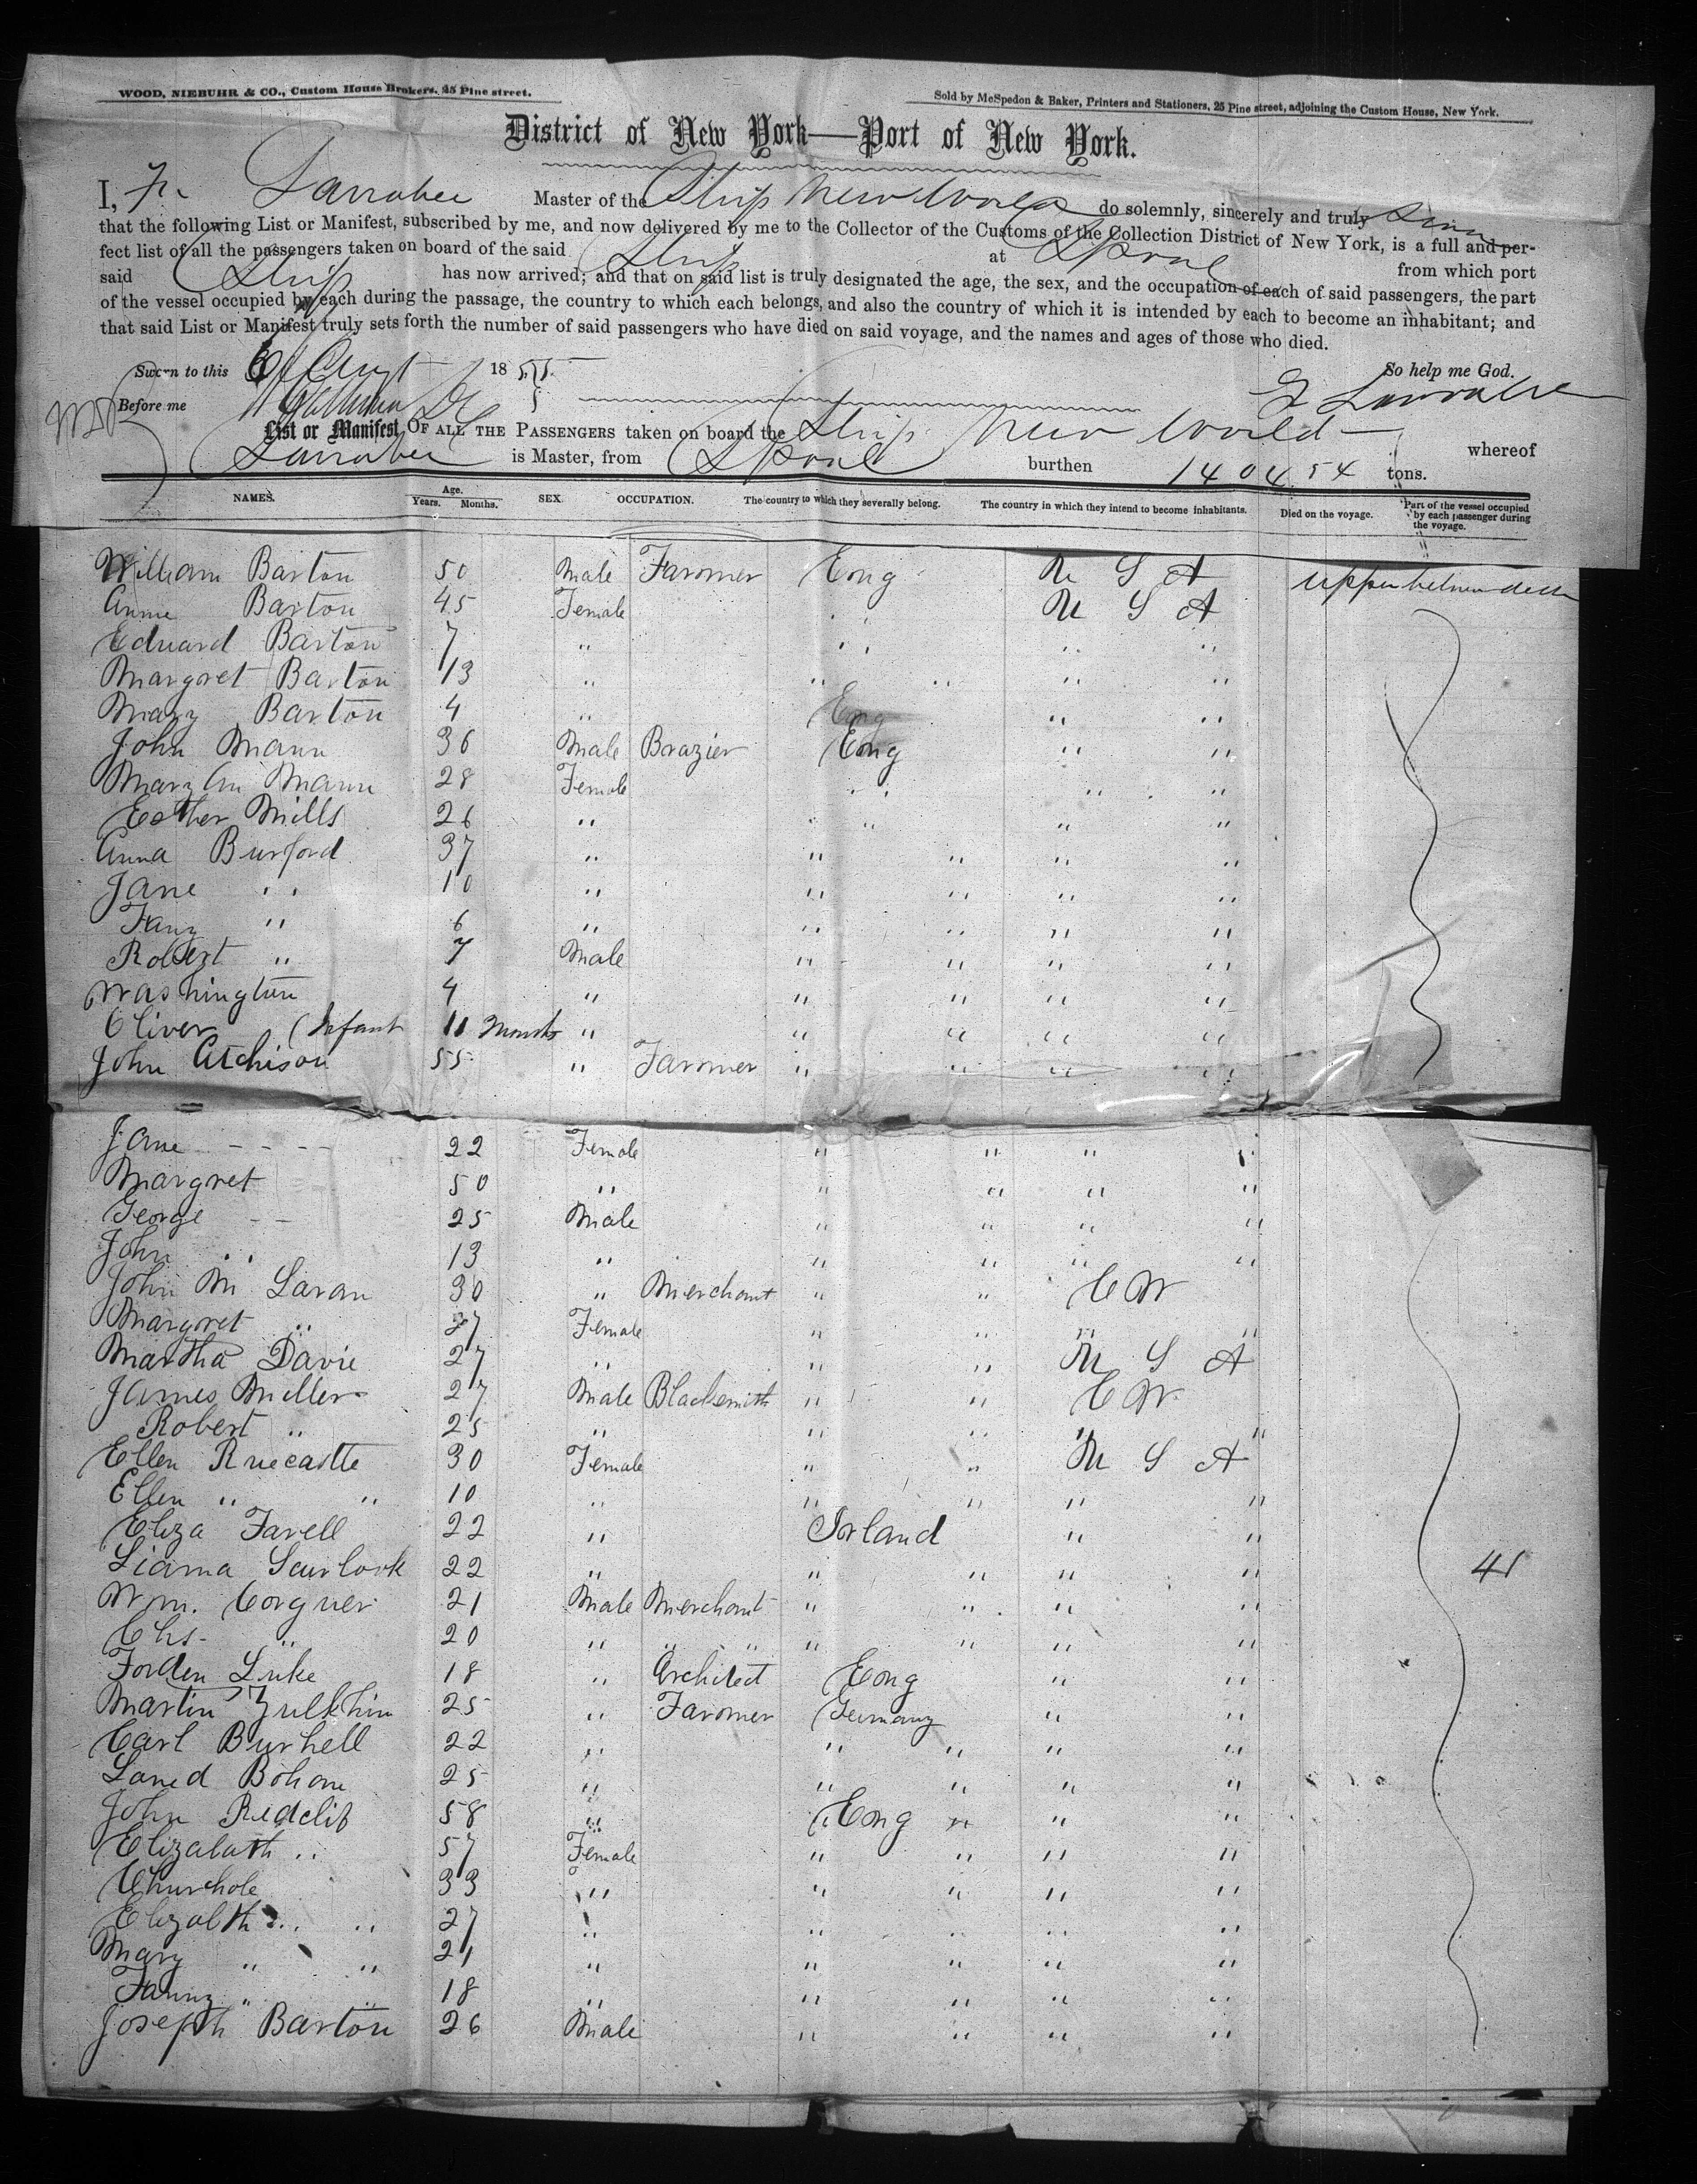 WOOD, NIEBUHR & CO., Custom House Brokers, 25 Pine street.
Sold by McSpedon & Baker, Printers and Stationers, 25 Pine street, adjoining the Custom House, New York.
District of New York—Port of New York.
I, Larrabee Master of the Ship New World do solemnly, sincerely and truly Swear
that the following List or Manifest, subscribed by me, and now delivered by me to the Collector of the Customs of the Collection District of New York, is a full and per-
fect list of all the passengers taken on board of the said Ship at Lpool from which port
said Ship has now arrived; and that on said list is truly designated the age, the sex, and the occupation of each of said passengers, the part
of the vessel occupied by each during the passage, the country to which each belongs, and also the country of which it is intended by each to become an inhabitant; and
that said List or Manifest truly sets forth the number of said passengers who have died on said voyage, and the names and ages of those who died.
Sworn to this 6 Augt 1855 So help me God.
Before me Larrabee
List or Manifest OF ALL THE PASSENGERS taken on board the Ship New World whereof
Larrabee is Master, from Lpool burthen 1404 54 tons.
NAMES. Age. Years. Months. SEX. OCCUPATION. The country to which they severally belong. The country in which they intend to become inhabitants. Died on the voyage. Part of the vessel occupied by each passenger during the voyage.
William Barton 50 Male Farmer Eng U S A upper between deck
Anne Barton 45 Female " U S A
Edward Barton 7 " " " " "
Margret Barton 13 " " " " "
Mary Barton 4 " Eng " "
John Mann 36 Male Brazier Eng " "
Mary An Mann 28 Female " " " "
Esther Mills 26 " " " " "
Anna Burford 37 " " " " "
Jane " 10 " " " " "
Fany " 6 " " " " "
Robert " 7 Male " " " "
Washington 4 " " " " "
Oliver (Infant 11 Months " " " " "
John Atchison 55 " Farmer " " " "
Jane - - - - 22 Female " " " "
Margret 50 " " " " "
George - - 25 Male " " " "
John " 13 " " " " "
John M Laran 30 " Merchant " " C W
Margret " 27 Female " " " "
Martha Davie 27 " " " U S A
James Miller 27 Male Blacksmith " " C W
Robert " 25 " " " " "
Ellen Ruecastle 30 Female " " U S A
Ellen " " 10 " " " " "
Eliza Farell 22 " Irland " "
Liama Scurlook 22 " " " " "
Wm. Corguer 21 Male Merchant " " " "
Chs. " 20 " " " " " " "
Forden Luke 18 " Architect Eng " "
Martin 25 " Farmer Germany " "
Carl Burhell 22 " " " " "
Laned Bohane 25 " " " " "
John Redclif 58 " Eng " " "
Elizabath " 57 Female " " " "
Churchole 33 " " " " "
Elizabth " " 27 " " " " "
Mary " " 21 " " " " "
Fanny " " 18 " " " " "
Joseph Barton 26 Male " " " "
41